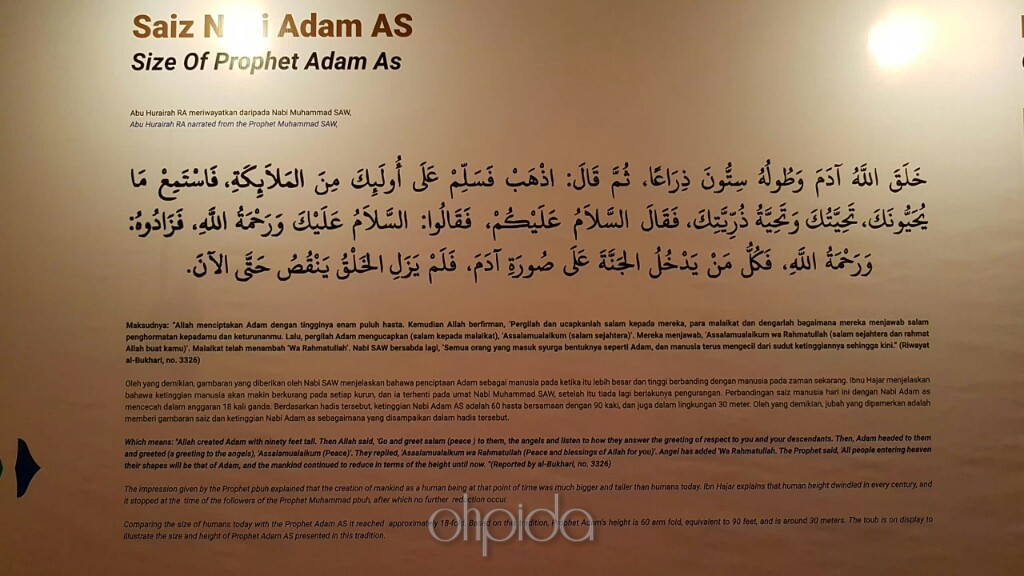 Saiz Nabi Adam AS
Size Of Prophet Adam As
Abu Hurairah RA meriwayatkan daripada Nabi Muhammad SAW,
Abu Hurairah RA narrated from the Prophet Muhammad SAW,
خَلَقَ اللَّهُ آدَمَ وَطُولُهُ سِتُّونَ ذِرَاعًا، ثُمَّ قَالَ: اذْهَبْ فَسَلِّمْ عَلَى أُولَئِكَ مِنَ المَلَائِكَةِ، فَاسْتَمِعْ مَا
يُحَيُّونَكَ، تَحِيَّتُكَ وَتَحِيَّةُ ذُرِّيَّتِكَ، فَقَالَ السَّلَامُ عَلَيْكُمْ، فَقَالُوا: السَّلَامُ عَلَيْكَ وَرَحْمَةُ اللَّهِ، فَزَادُوهُ:
وَرَحْمَةُ اللَّهِ، فَكُلُّ مَنْ يَدْخُلُ الجَنَّةَ عَلَى صُورَةِ آدَمَ، فَلَمْ يَزَلِ الخَلْقُ يَنْقُصُ حَتَّى الآنَ.
Maksudnya: "Allah menciptakan Adam dengan tingginya enam puluh hasta. Kemudian Allah berfirman, 'Pergilah dan ucapkanlah salam kepada mereka, para malaikat dan dengarlah bagaimana mereka menjawab salam
penghormatan kepadamu dan keturunanmu. Lalu, pergilah Adam mengucapkan (salam kepada malaikat), 'Assalamualaikum (salam sejahtera)'. Mereka menjawab, 'Assalamualaikum wa Rahmatullah (salam sejahtera dan rahmat
Allah buat kamu)'. Malaikat telah menambah 'Wa Rahmatullah'. Nabi SAW bersabda lagi, 'Semua orang yang masuk syurga bentuknya seperti Adam, dan manusia terus mengecil dari sudut ketinggiannya sehingga kini." (Riwayat
al-Bukhari, no. 3326)
Oleh yang demikian, gambaran yang diberikan oleh Nabi SAW menjelaskan bahawa penciptaan Adam sebagai manusia pada ketika itu lebih besar dan tinggi berbanding dengan manusia pada zaman sekarang. Ibnu Hajar menjelaskan
bahawa ketinggian manusia akan makin berkurang pada setiap kurun, dan ia terhenti pada umat Nabi Muhammad SAW, setelah itu tiada lagi berlakunya pengurangan. Perbandingan saiz manusia hari ini dengan Nabi Adam as
mencecah dalam anggaran 18 kali ganda. Berdasarkan hadis tersebut, ketinggian Nabi Adam AS adalah 60 hasta bersamaan dengan 90 kaki, dan juga dalam lingkungan 30 meter. Oleh yang demikian, jubah yang dipamerkan adalah
memberi gambaran saiz dan ketinggian Nabi Adam as sebagaimana yang disampaikan dalam hadis tersebut.
Which means: "Allah created Adam with ninety feet tall. Then Allah said, 'Go and greet salam (peace ) to them, the angels and listen to how they answer the greeting of respect to you and your descendants. Then, Adam headed to them
and greeted (a greeting to the angels), 'Assalamualaikum (Peace)'. They replied, 'Assalamualaikum wa Rahmatullah (Peace and blessings of Allah for you)'. Angel has added 'Wa Rahmatullah. The Prophet said, 'All people entering heaven
their shapes will be that of Adam, and the mankind continued to reduce in terms of the height until now. "(Reported by al-Bukhari, no. 3326)
The impression given by the Prophet pbuh explained that the creation of mankind as a human being at that point of time was much bigger and taller than humans today. Ibn Hajar explains that human height dwindled in every century, and
it stopped at the time of the followers of the Prophet Muhammad pbuh, after which no further reduction occur.
Comparing the size of humans today with the Prophet Adam AS it reached approximately 18-fold. Based on this tradition, Prophet Adam's height is 60 arm fold, equivalent to 90 feet, and is around 30 meters. The toub is on display to
illustrate the size and height of Prophet Adam AS presented in this tradition.
ohpida